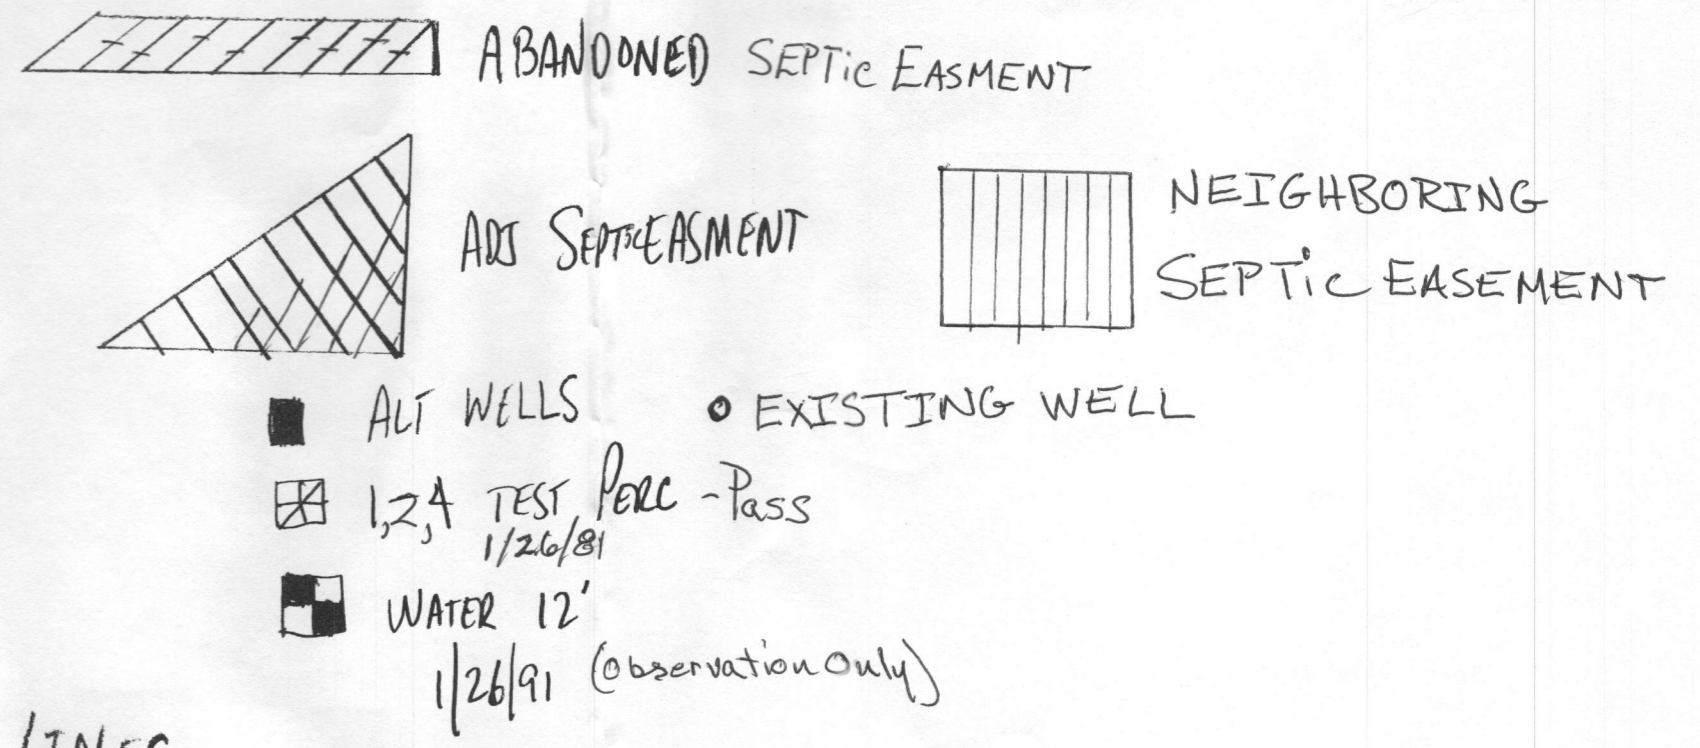 ABANDONED SEPTiC EASMENT
ADJ SEPTiC EASMENT
NEIGHBORING
SEPTiC EASEMENT
ALT WELLS
EXISTING WELL
1,2,4 TEST PERC - Pass
1/26/81
WATER 12'
1/26/91 (Observation Only)
LINES